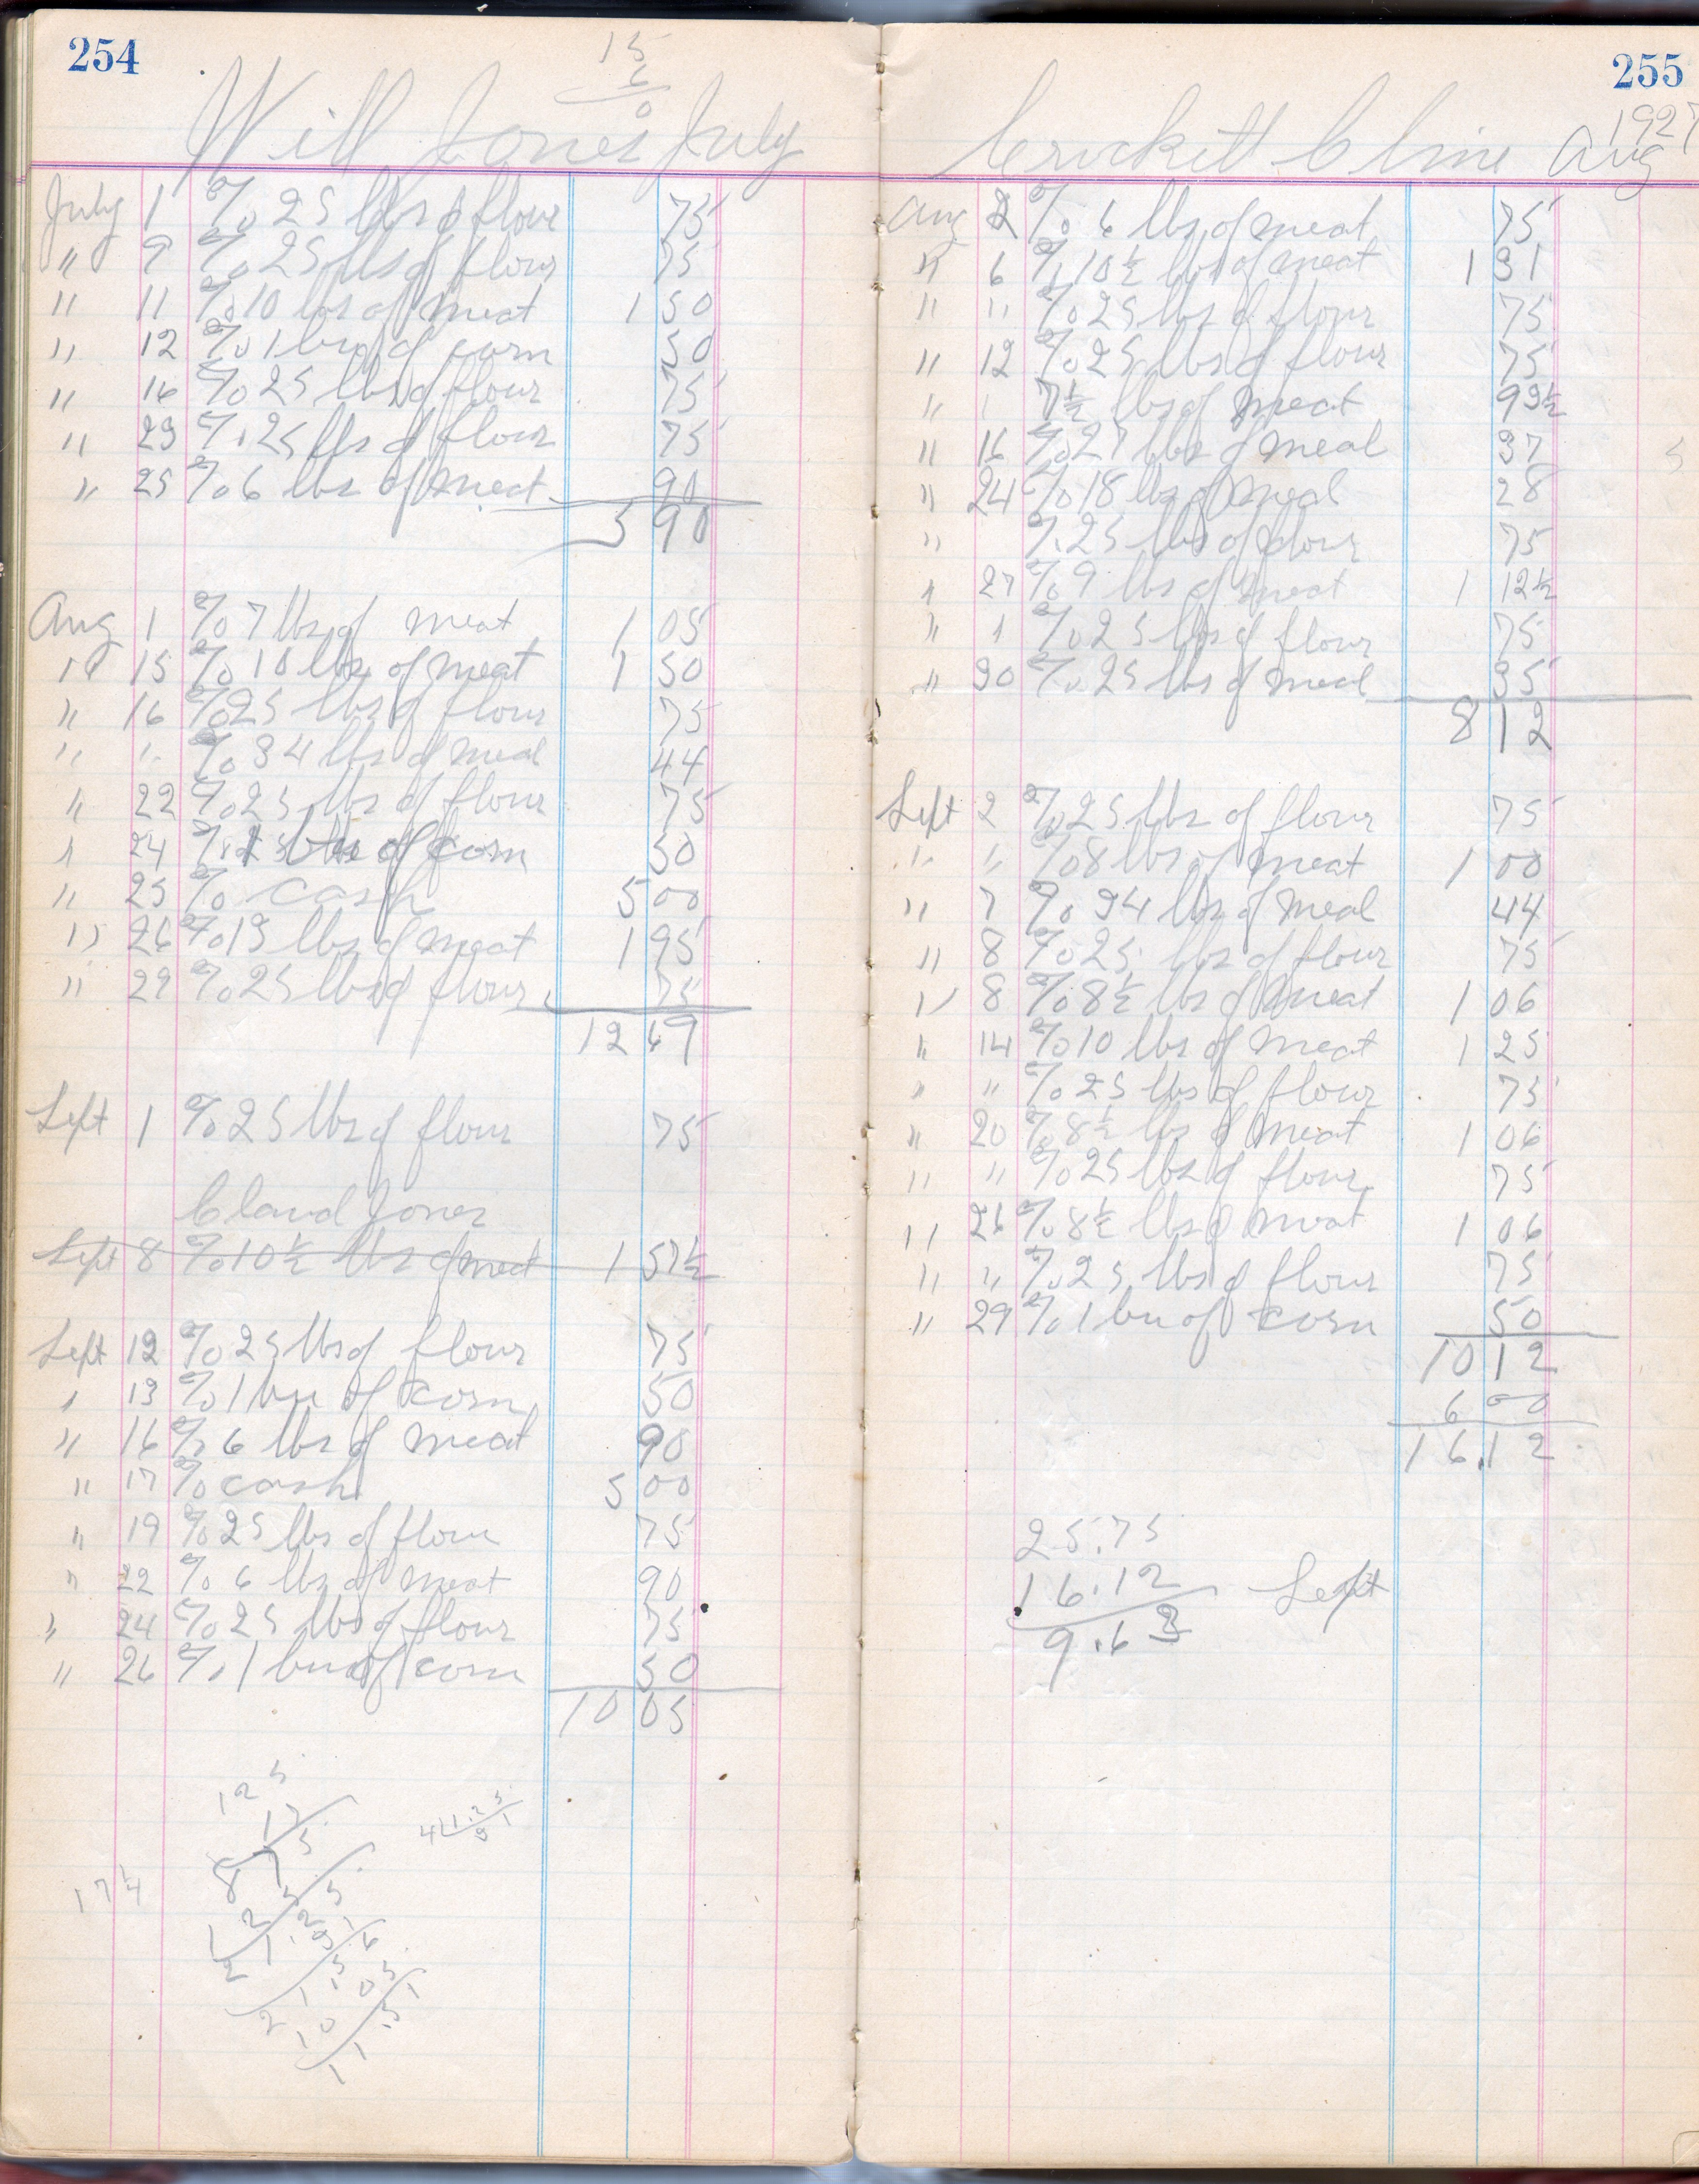 254
15
6
0
Will Jones July
July 1 % 25 lbs of flour 75
" 9 % 25 lbs of flour 75
" 11 % 10 lbs of meat 1 50
" 12 % 1 bu of corn 50
" 16 % 25 lbs of flour 75
" 23 % 25 lbs of flour 75
" 25 % 6 lbs of meat 90
5 90
Aug 1 % 7 lbs of meat 1 05
" 15 % 10 lbs of meat 1 50
" 16 % 25 lbs of flour 75
" " % 34 lbs of meal 44
" 22 % 25 lbs of flour 75
" 24 % 1 bu of corn 50
" 25 % cash 5 00
" 26 % 13 lbs of meat 1 95
" 29 % 25 lbs of flour 75
12 69
Sept 1 % 25 lbs of flour 75
Claud Jones
Sept 8 % 10 1/2 lbs of meat 1 57 1/2
Sept 12 % 25 lbs of flour 75
" 13 % 1 bu of corn 50
" 16 % 6 lbs of meat 90
" 17 % cash 5 00
" 19 % 25 lbs of flour 75
" 22 % 6 lbs of meat 90
" 24 % 25 lbs of flour 75
" 26 % 1 bu of corn 50
10 05
17 1/4
255
1927
Crockett Cline Aug
Aug 2 % 6 lbs of meat 75
" 6 % 10 1/2 lbs of meat 1 31
" " % 25 lbs of flour 75
" 12 % 25 lbs of flour 75
" " 7 1/2 lbs of meat 93 1/2
" 16 % 27 lbs of meal 37
" 24 % 18 lbs of meal 28
" % 25 lbs of flour 75
" 27 % 9 lbs of meat 1 12 1/2
" " % 25 lbs of flour 75
" 30 % 25 lbs of meal 35
8 12
Sept 2 % 25 lbs of flour 75
" " % 8 lbs of meat 1 00
" 7 % 34 lbs of meal 44
" 8 % 25 lbs of flour 75
" 8 % 8 1/2 lbs of meat 1 06
" 14 % 10 lbs of meat 1 25
" " % 25 lbs of flour 75
" 20 % 8 1/2 lbs of meat 1 06
" " % 25 lbs of flour 75
" 26 % 8 1/2 lbs of meat 1 06
" " % 25 lbs of flour 75
" 29 % 1 bu of corn 50
10 12
6 00
16.12
25.75
16.12 Left
9.63